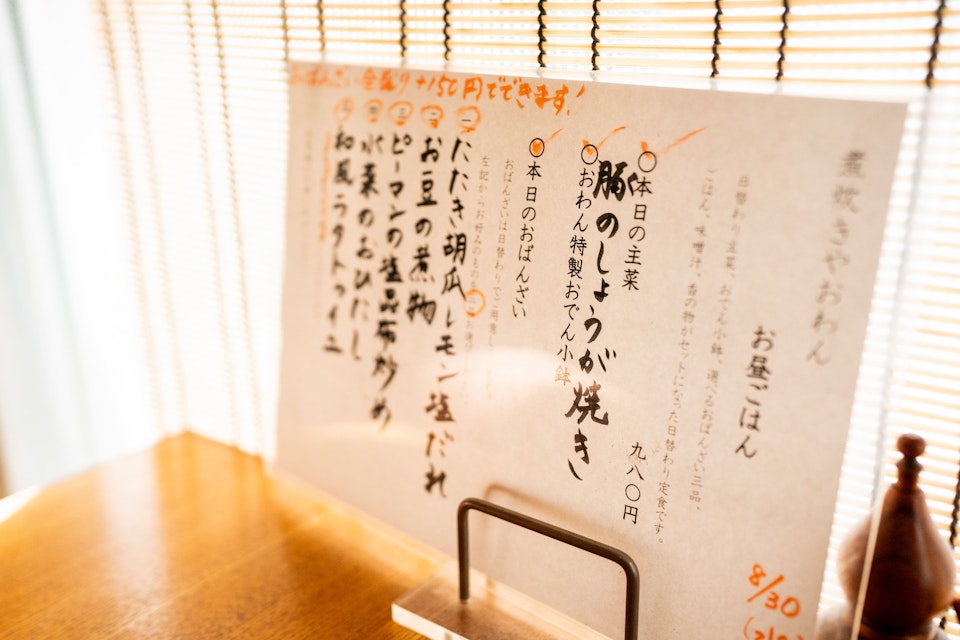 煮炊きやおわん
お昼ごはん
日替わり主菜、おでん小鉢、選べるおばんざい三品、
ごはん、味噌汁、香の物がセットになった日替わり定食です。
九八〇円
〇本日の主菜
豚のしょうが焼き
〇おわん特製おでん小鉢
〇本日のおばんざい
おばんざいは日替わりでご用意し
左記からお好みのものを三
一 たたき胡瓜レモン塩だれ
二 お豆の煮物
三 ピーマンの塩昆布炒め
四 水菜のおひたし
五 和風ラタトゥイユ
おばんざい全盛り+150円でできます!
8/30